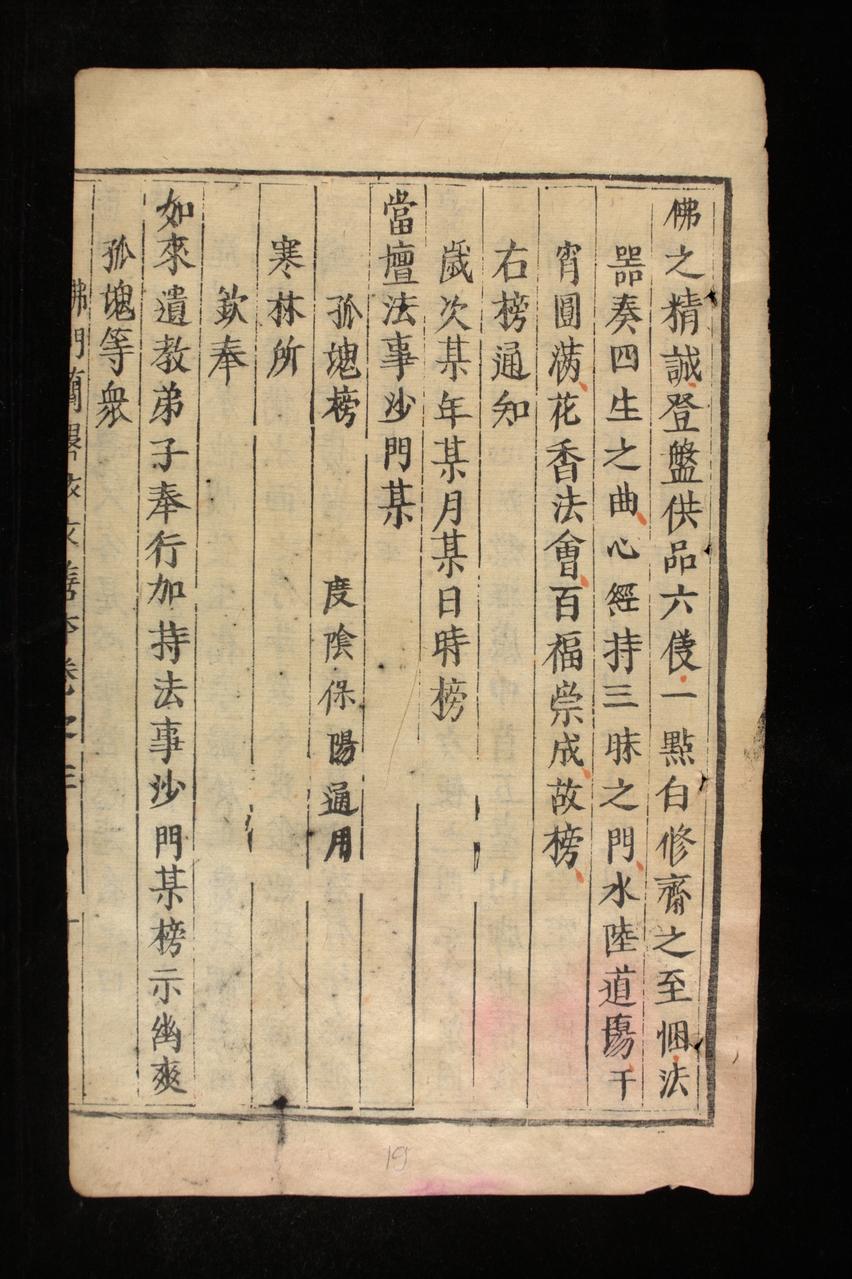 佛之精誠登盤供品六伎一點白修齋之至悃法
器奏四生之曲心經持三昧之門水陸道塲干
宵圓满花香法會百福崇成故榜
右榜通知
歲次某年某月某日時榜
當壇法事沙門某
孤塊榜 度陰保陽通用
寒林所
欽奉
如來遺教弟子奉行加持法事沙門某榜示幽爽
孤塊等衆
佛門
19